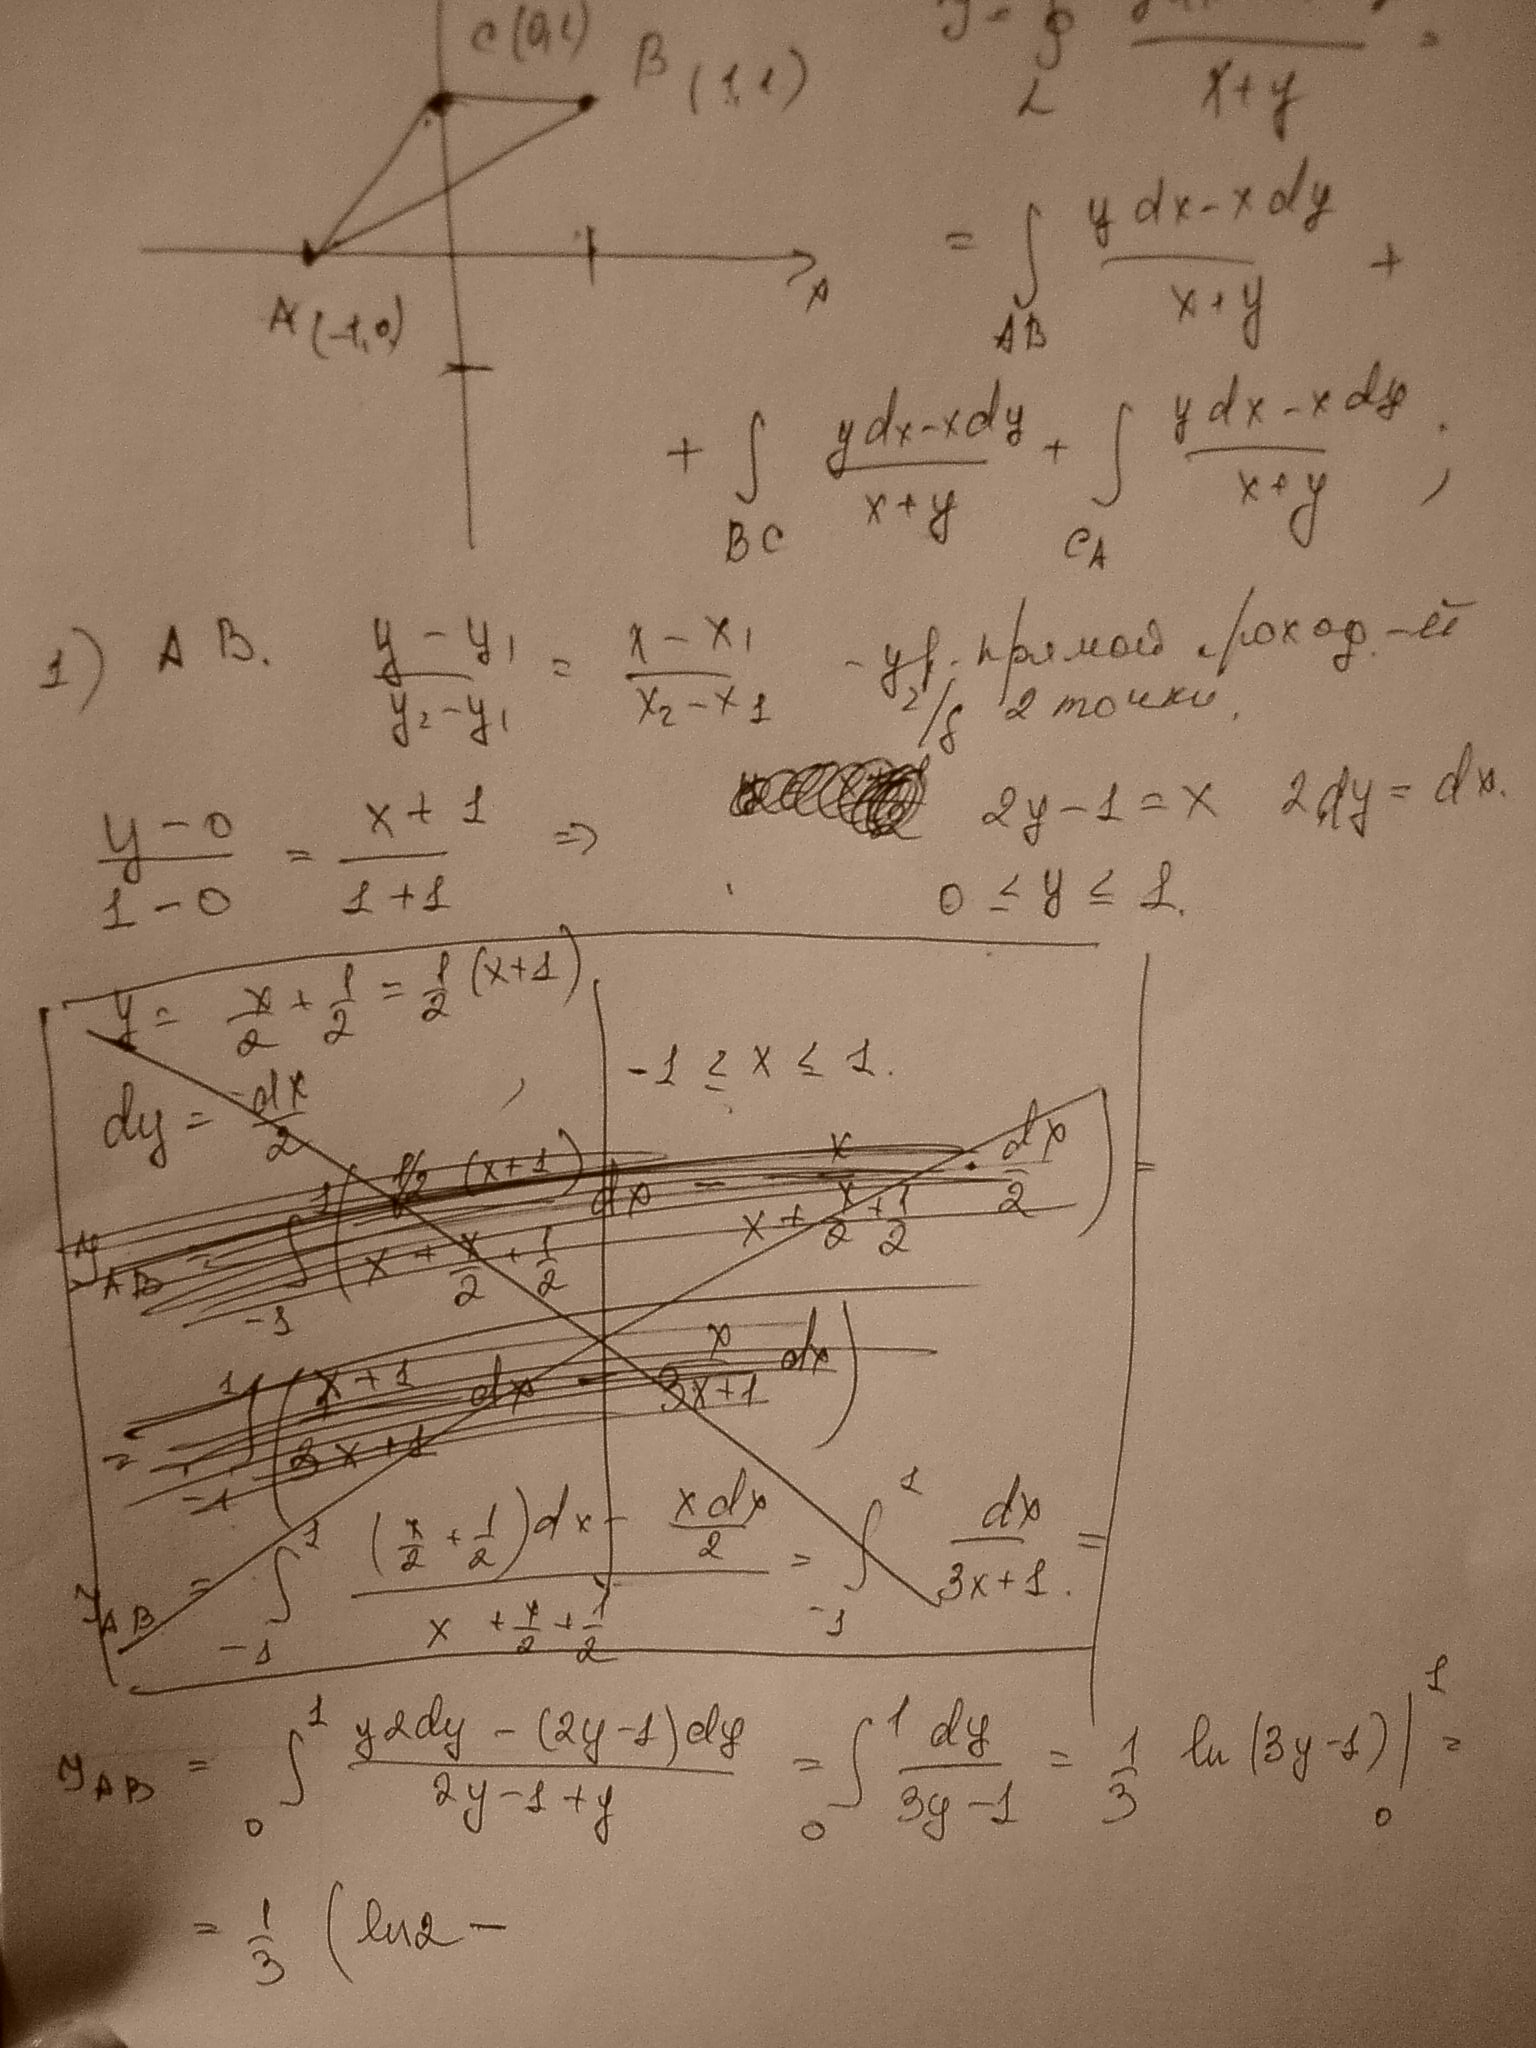 C(0,1) B(1,1)
A(-1,0)
x+y
L
= ∫ (y dx - x dy)/(x+y) +
AB
+ ∫ (y dx - x dy)/(x+y) + ∫ (y dx - x dy)/(x+y) ;
BC CA
1) AB. (y - y₁)/(y₂ - y₁) = (x - x₁)/(x₂ - x₁) - ур. прямой 2 точки.
(y-0)/(1-0) = (x+1)/(1+1) => 2y-1=x 2dy=dx.
0 ≤ y ≤ 1.
y = x/2 + 1/2 = 1/2 (x+1)
-1 ≥ x ≤ 1.
dy = dx/2 ,
y_AB = ∫_{-1}^{1} ( (1/2 (x+1))/(x + x/2 + 1/2) dx - x/(x + x/2 + 1/2) · dx/2 ) =
= ∫_{-1}^{1} ( (x+1)/(3x+1) dx - x/(3x+1) dx )
y_AB = ∫_{-1}^{1} ((x/2 + 1/2)dx - xdx/2)/(x + x/2 + 1/2) = ∫_{-1}^{1} dx/(3x+1) =
y_AB = ∫_0^1 (y2dy - (2y-1)dy)/(2y-1+y) = ∫_0^1 dy/(3y-1) = 1/3 ln(3y-1)|_0^1 =
= 1/3 (ln2 -